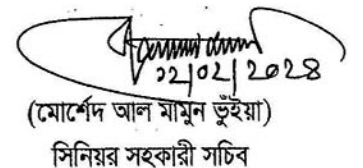 ১২/০২/২০২৪
(মোর্শেদ আল মামুন ভূঁইয়া)
সিনিয়র সহকারী সচিব